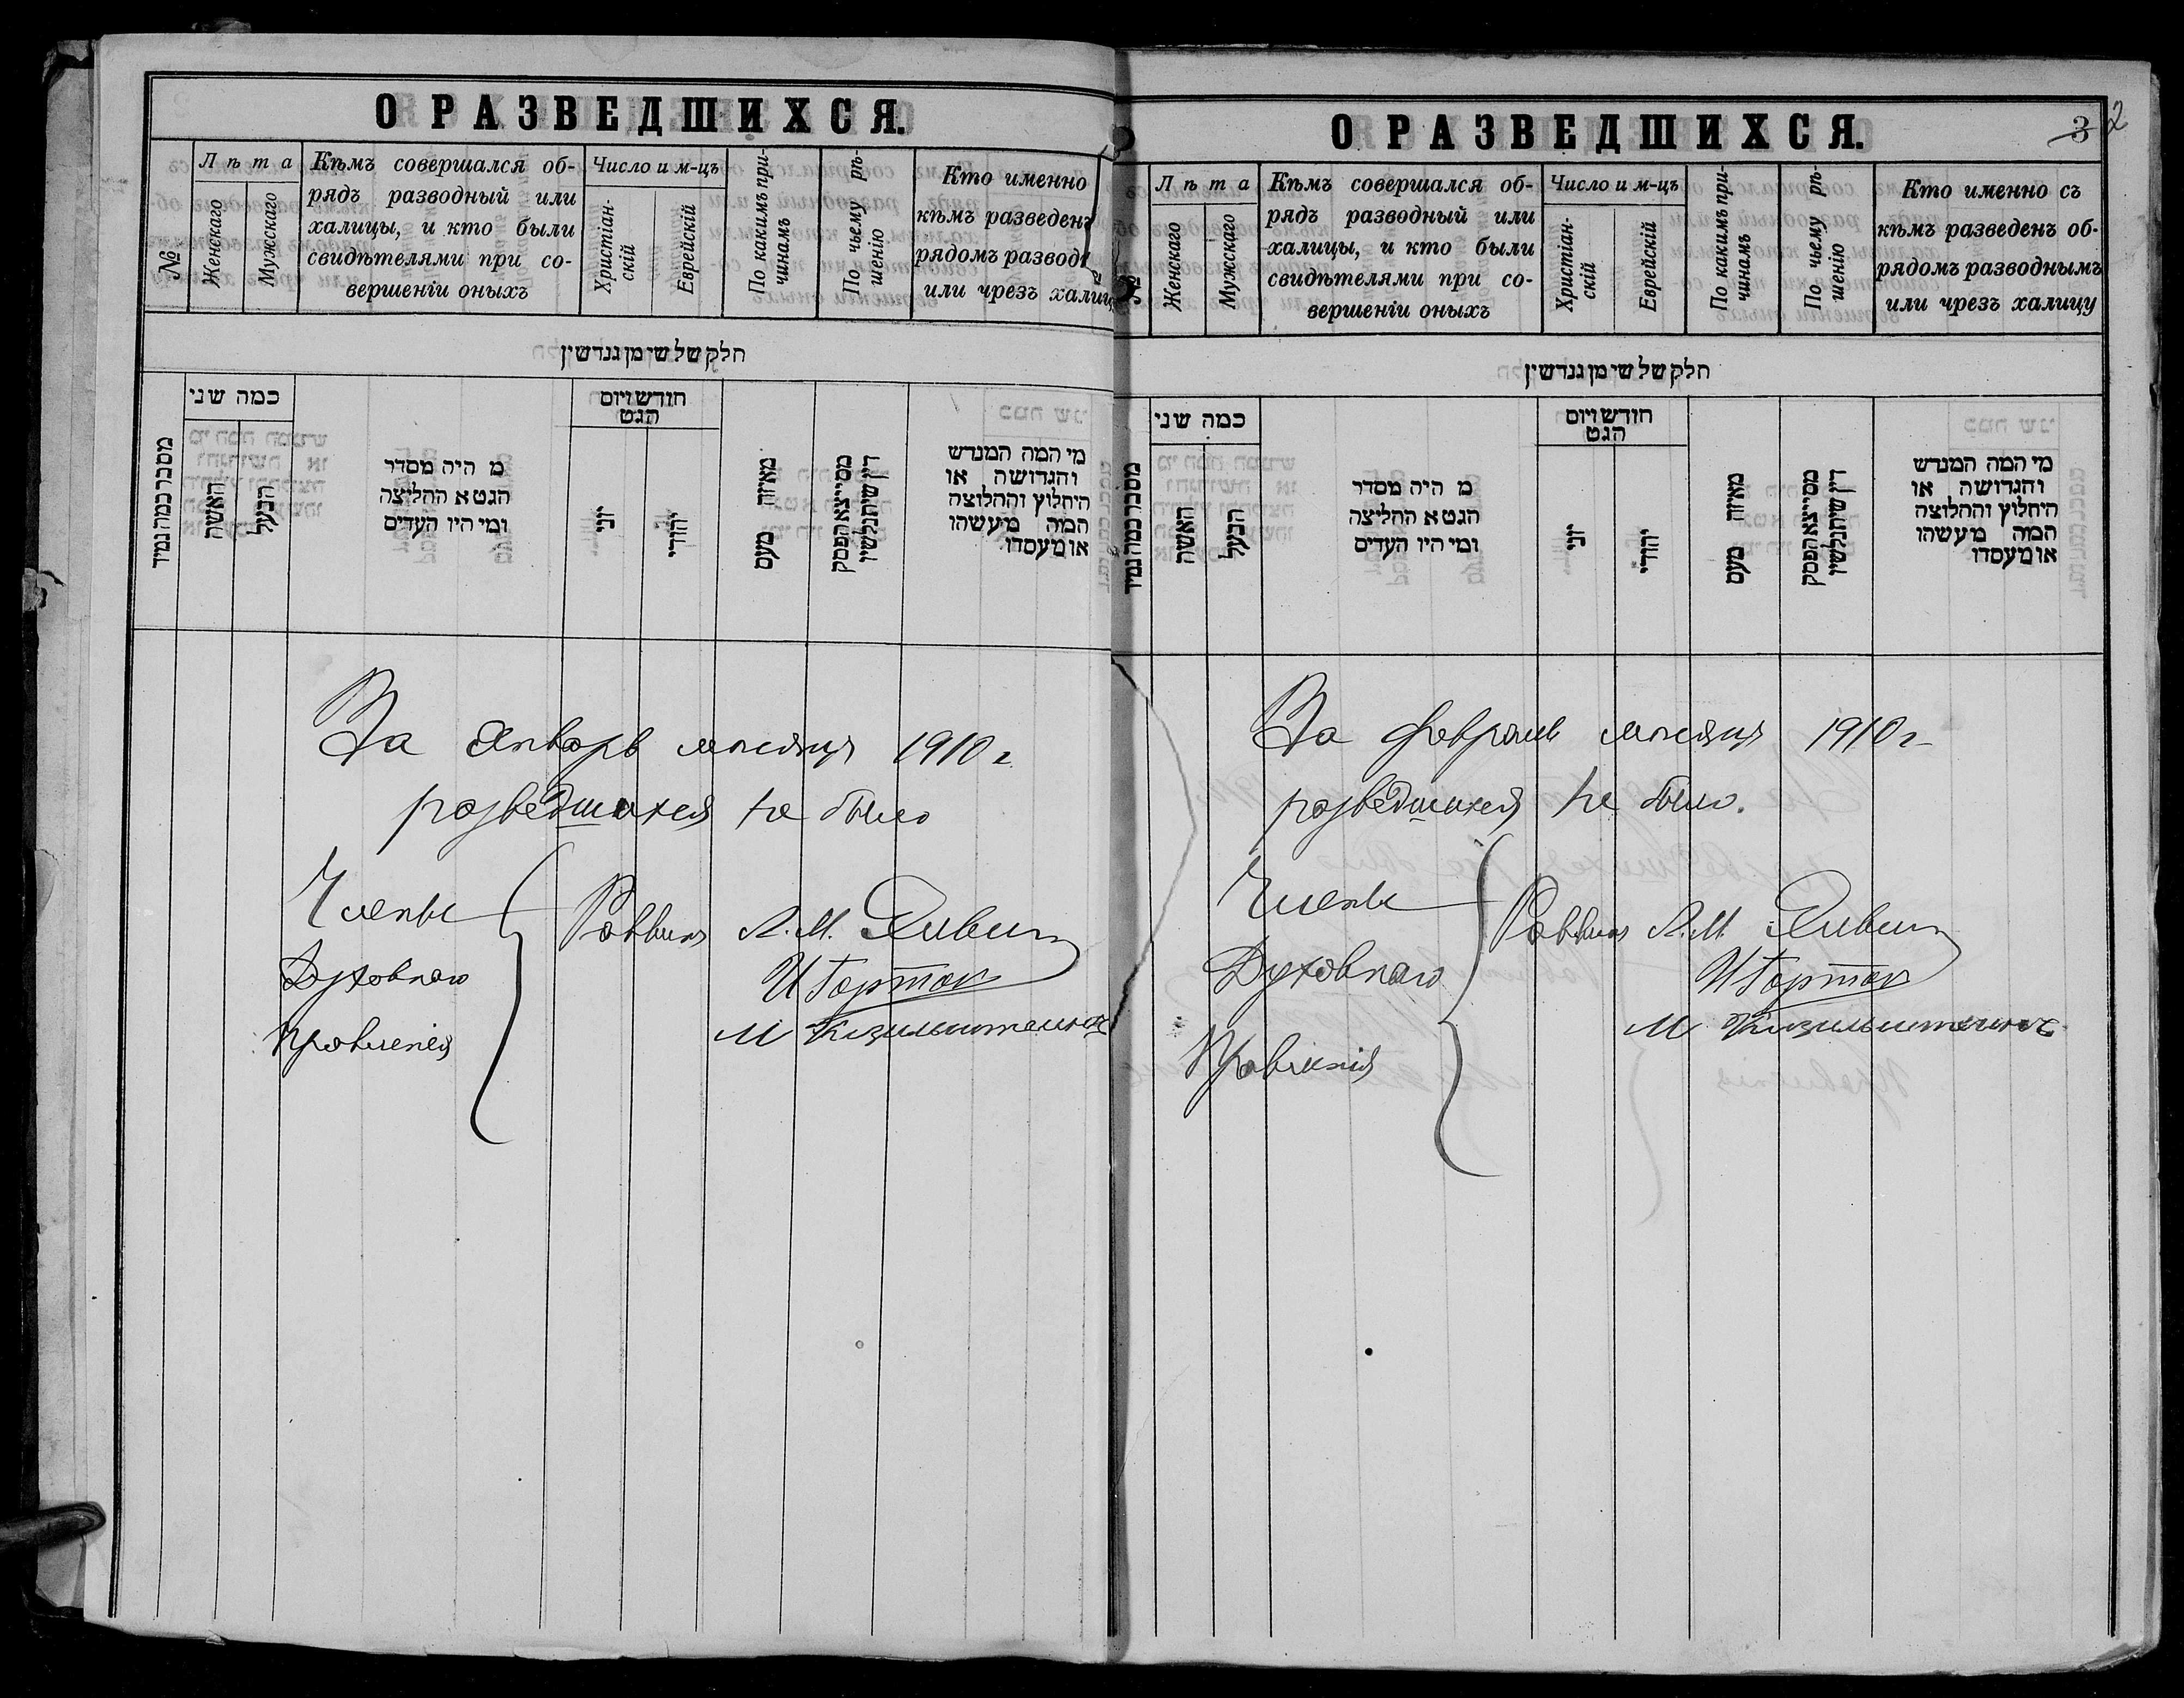 О РАЗВЕДШИХСЯ.
№
Лѣта
Женскаго
Мужскаго
Кѣмъ совершался об-
рядъ разводный или
халицы, и кто были
свидѣтелями при со-
вершеніи оныхъ
Число и м-цъ
Христіан-
скій
Еврейскій
По какимъ при-
чинамъ
По чьему рѣ-
шенію
Кто именно
кѣмъ разведенъ
рядомъ развод
или чрезъ халиц
חלק של שי מן גנדשין
כמה שני
האשה
הבעל
מ היה מסדר
הגט א ההליצה
ומי היו העדים
חודש ויום
הגט
יוני
יהודי
מאיזה טעם
מי המה המגדש
והגדושה או
היחלוץ וההלוצה
המה מעשהו
או מעסדו
За Январь мѣсяцъ 1910 г.
разведшихся не было
Члены
Духовнаго
Правленія
Раввинъ А.М.
И Гортов
М
О РАЗВЕДШИХСЯ.
3
2
Лѣта
Женскаго
Мужскаго
Кѣмъ совершался об-
рядъ разводный или
халицы, и кто были
свидѣтелями при со-
вершеніи оныхъ
Число и м-цъ
Христіан-
скій
Еврейскій
По какимъ при-
чинамъ
По чьему рѣ-
шенію
Кто именно съ
кѣмъ разведенъ об-
рядомъ разводнымъ
или чрезъ халицу
חלק של שי מן גנדשין
כמה שני
האשה
הבעל
מ היה מסדר
הגט א ההליצה
ומי היו העדים
חודש ויום
הגט
יוני
יהודי
מאיזה טעם
מי המה המגדש
והגדושה או
היחלוץ וההלוצה
המה מעשהו
או מעסדו
За февраль мѣсяцъ 1910 г.
разведшихся не было.
Члены
Духовнаго
Правленія
Раввинъ А.М.
И Гортов
М